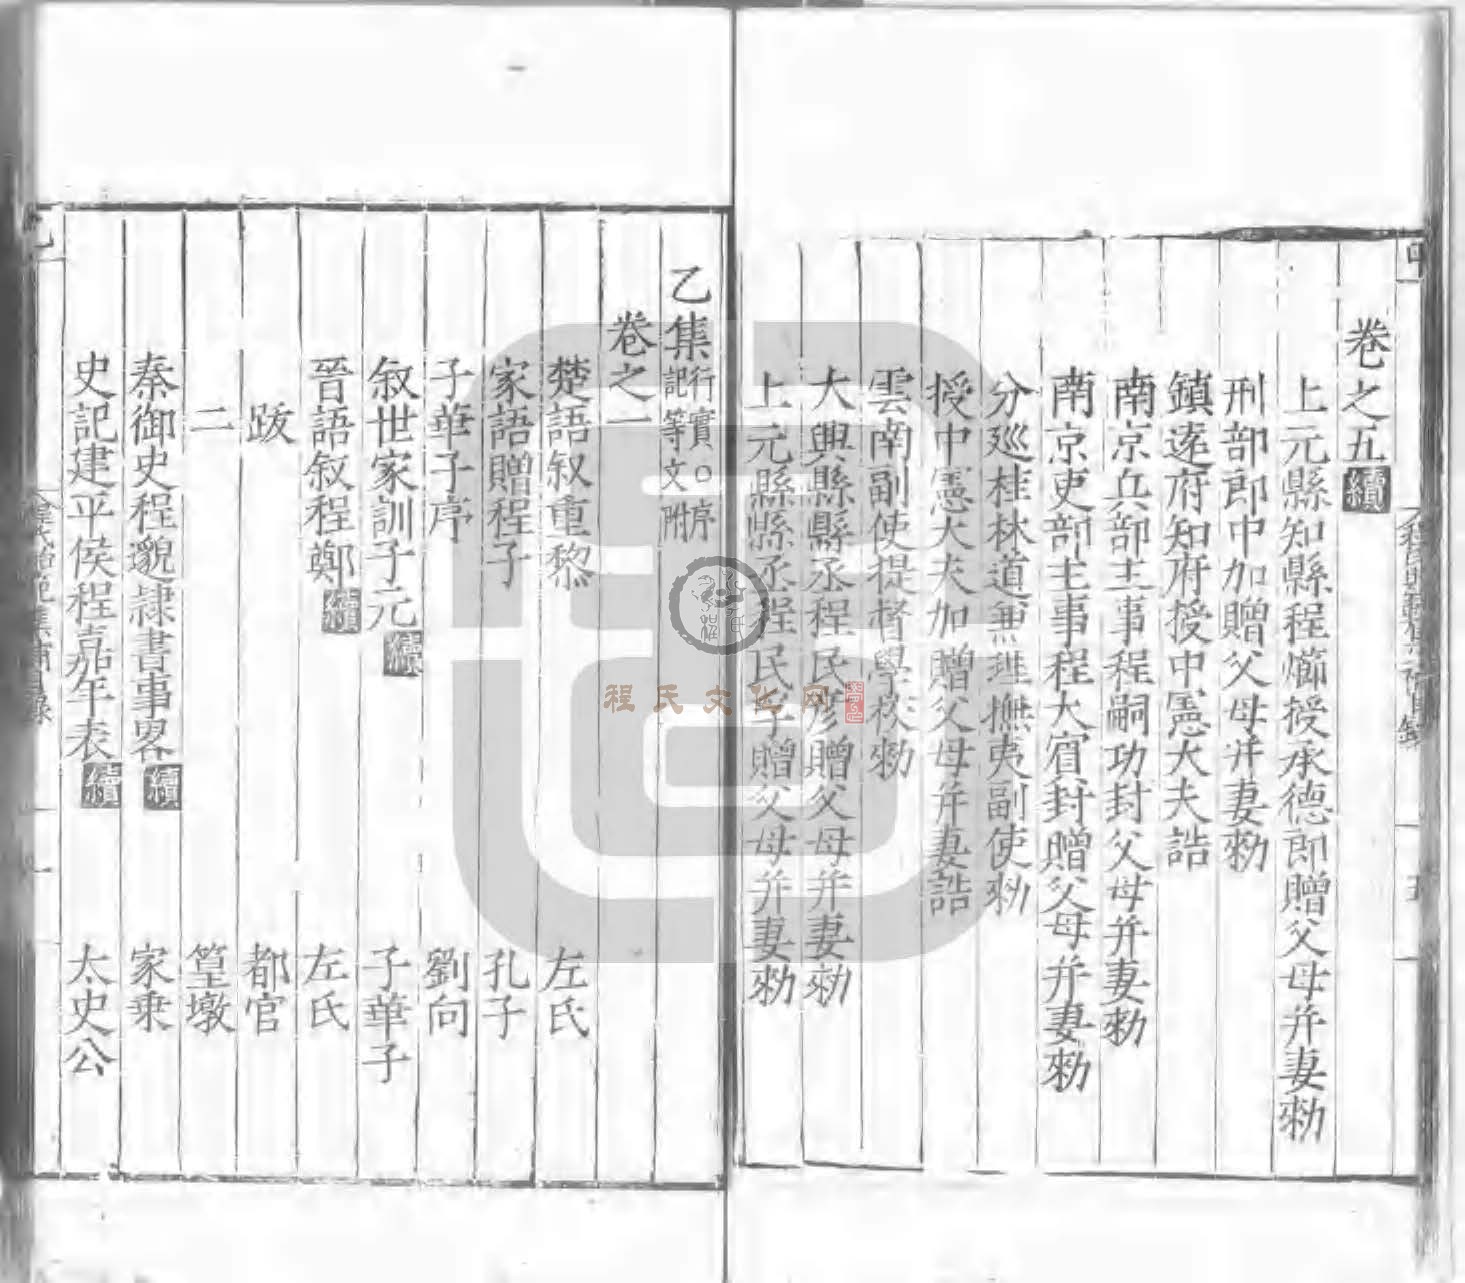 卷之五續
上元縣知縣程㸅授承德郎贈父母并妻勑
刑部郎中加贈父母并妻勑
鎮遠府知府授中憲大夫誥
南京兵部主事程嗣功封父母并妻勑
南京吏部主事程大賓封贈父母并妻勑
分廵桂林道兼理撫夷副使勑
授中憲大夫加贈父母并妻誥
雲南副使提督學校勑
大興縣縣丞程民彥贈父母并妻勑
上元縣縣丞程民贈父母并妻勑
乙集行實○序記等文附
卷之一
楚語叙重黎 左氏
家語贈程子 孔子
子華子序 劉向
叙世家訓子元續 子華子
晉語叙程鄭續 左氏
跋 都官
二 篁墩
秦御史程邈隷書事畧續 家乗
史記建平侯程嘉年表續 太史公
程氏文化网